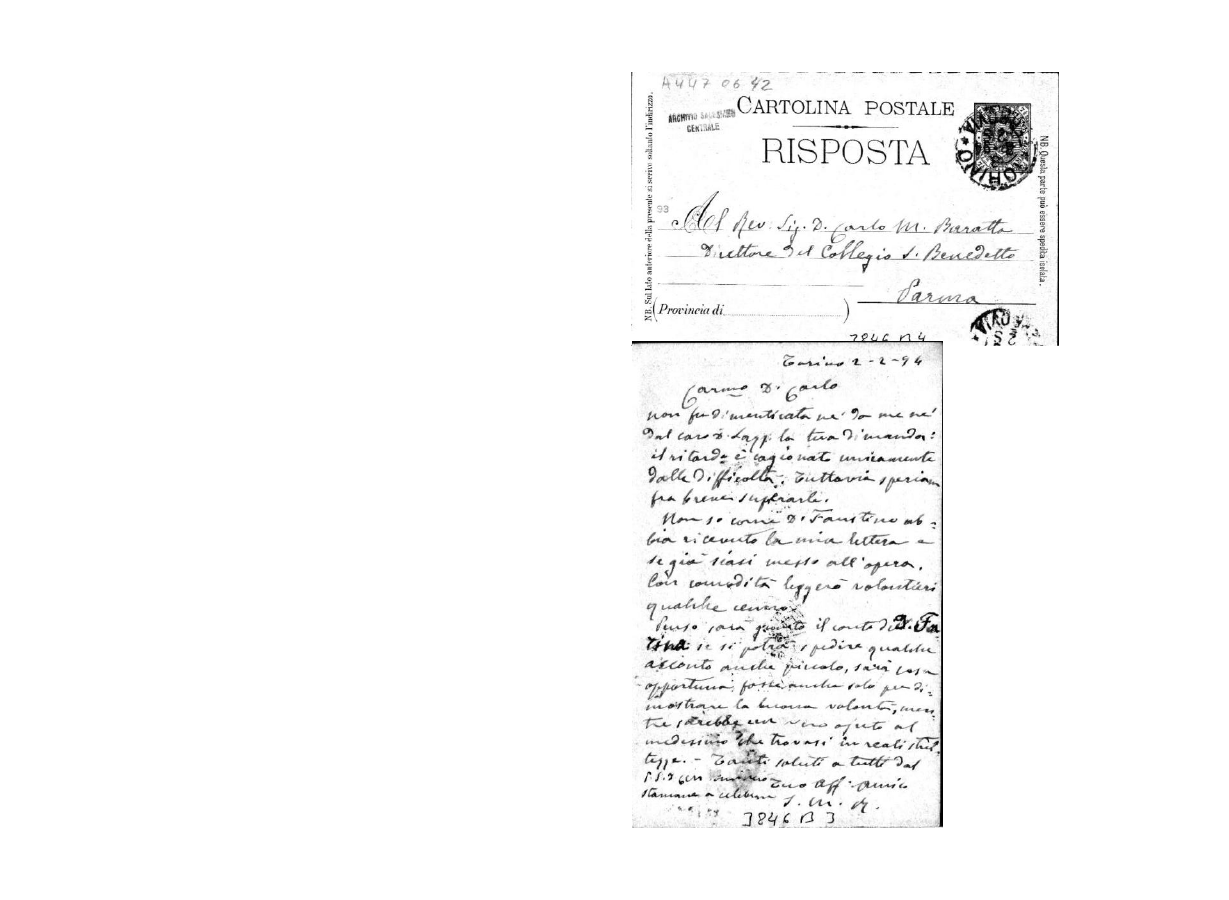 A447 06 42
ARCHIVIO SALESIANO
CENTRALE
CARTOLINA POSTALE
RISPOSTA
NB. Sul lato anteriore della presente si scrive soltanto l'indirizzo.
NB. Questa parte può essere spedita isolata.
TORINO
93
Al Rev. Sig. D. Carlo M. Barratta
Direttore del Collegio S. Benedetto
Parma
(Provincia di )
3846 B 4
Torino 2-2-94
Carmo D. Carlo
non fu dimenticata nè da me nè
dal caro D. Lazz. la tua dimanda:
il ritardo è cagionato unicamente
dalle difficoltà. Tuttavia speriam
fra breve superarle.
Non so come D. Faustino ab=
bia ricevuto la mia lettera e
se già siasi messo all'opera.
Con comodità leggerò volontieri
qualche cenno.
Penso sarà il conto di D. Fa
se si potrà spedire qualche
acconto anche piccolo, sarà cosa
opportuna, fosse anche solo per di-
mostrare la buona volontà, men-
tre sarebbe un vero ajuto al
medesimo che trovasi in reali stret-
tezze. - Tanti saluti a tutti dal
Tuo aff. amico
stamane a celebrare
S. M. R.
3846 B 3